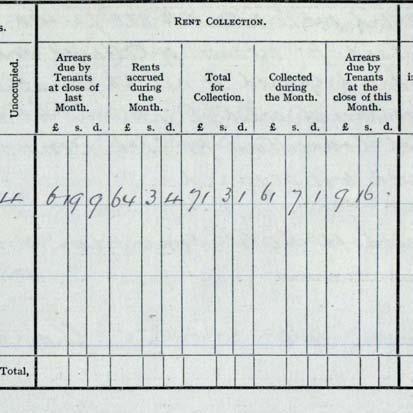 s.
RENT COLLECTION.
Unoccupied.
Arrears due by Tenants at close of last Month.
Rents accrued during the Month.
Total for Collection.
Collected during the Month.
Arrears due by Tenants at the close of this Month.
in
£ s. d. £ s. d. £ s. d. £ s. d. £ s. d.
4 6 19 9 64 3 4 71 3 1 61 7 1 9 16 .
Total,